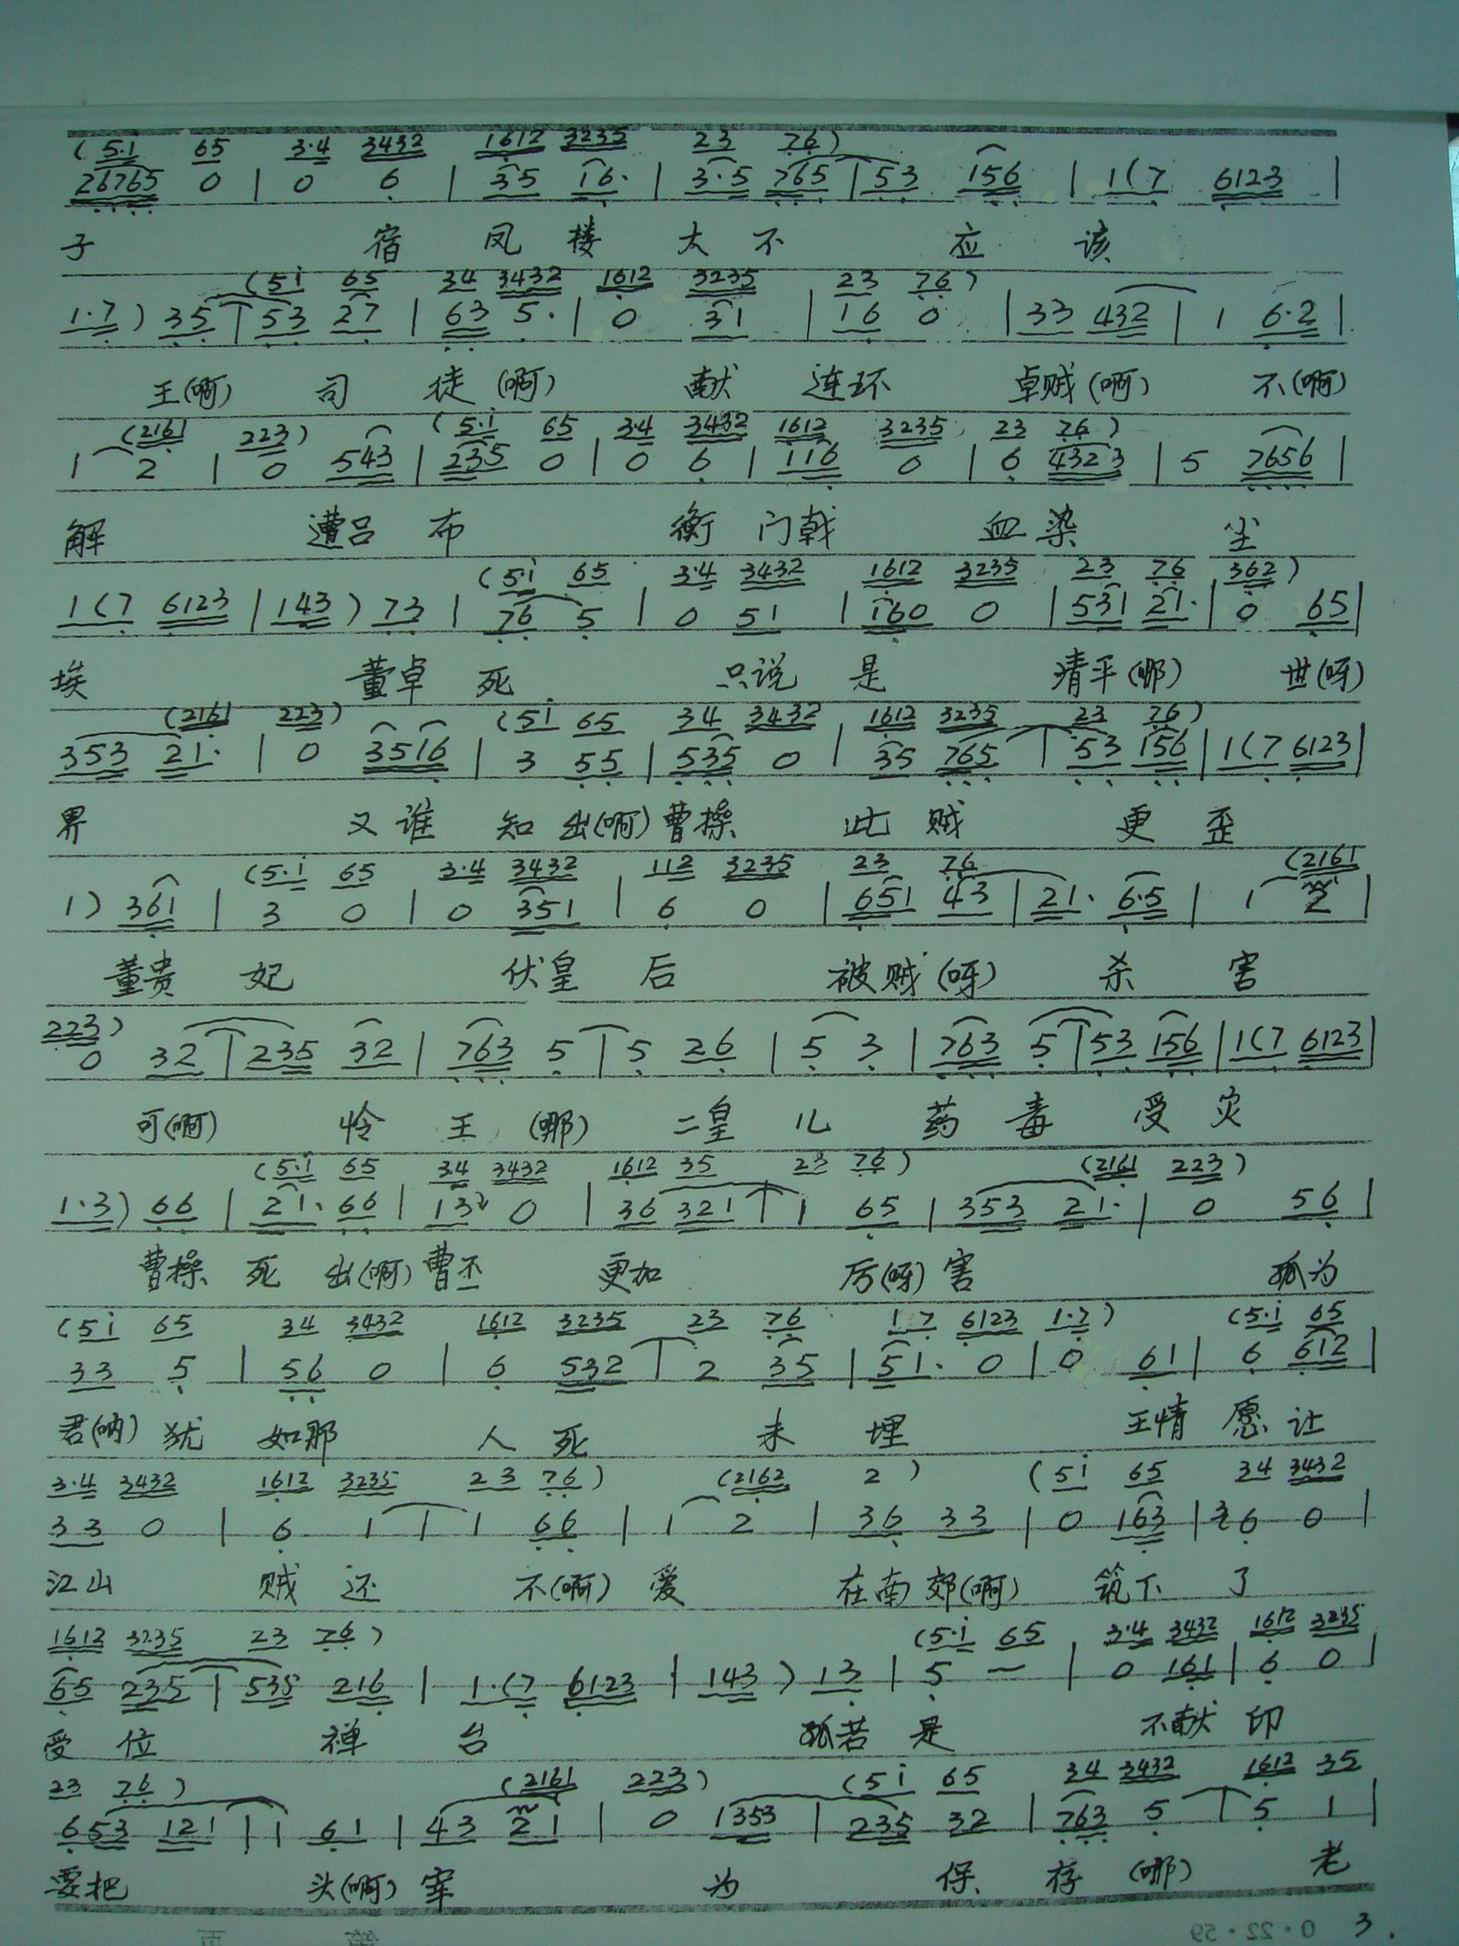 (5·i 65 3·4 3432 1612 3235 23 76)
26765 0 | 0 6 | 35 16· | 3·5 765 | 53 156 | 1(7 6123 |
子 宿 凤 楼 太 不 应 该
(5i 65 34 3432 1612 3235 23 76)
1·7) 35 | 53 27 | 63 5· | 0 31 | 16 0 | 33 432 | 1 6·2 |
王(啊) 司 徒(啊) 献 连环 卓贼(啊) 不(啊)
(2161 223) (5·i 65 3·4 3432 1612 3235 23 76)
1 2 | 0 543 | 235 0 | 0 6 | 116 0 | 6 4323 | 5 7656 |
解 遭吕 布 衡 门戟 血染 尘
(5·i 65 3·4 3432 1612 3235 23 76 362)
1(7 6123 | 143) 73 | 76 5 | 0 51 | 160 0 | 531 21· | 0 65 |
埃 董卓 死 只说 是 清平(哪) 世(呀)
(2161 223) (5i 65 34 3432 1612 3235 23 76)
353 21· | 0 3516 | 3 55 | 535 0 | 35 765 | 53 156 | 1(7 6123 |
界 又谁 知 出(啊)曹操 此 贼 更 歪
(5·i 65 3·4 3432 112 3235 23 76 (2161
1) 361 | 3 0 | 0 351 | 6 0 | 651 43 | 21· 6·5 | 1 2 |
董贵 妃 伏皇 后 被贼(呀) 杀 害
223)
0 32 | 235 32 | 763 5 | 5 26 | 5 3 | 763 5 | 53 156 | 1(7 6123 |
可(啊) 怜 王 (哪) 二皇 儿 药 毒 受 灾
(5·i 65 34 3432 1612 35 23 76) (2161 223)
1·3) 66 | 21· 66 | 13 0 | 36 321 | 1 65 | 353 21· | 0 56 |
曹操 死 出(啊)曹丕 更加 厉(呀)害 孤为
(5i 65 34 3432 1612 3235 23 76 1·7 6123 1·7) (5·i 65
33 5 | 56 0 | 6 532 | 2 35 | 51· 0 | 0 61 | 6 612 |
君(呐) 犹 如那 人 死 未 埋 王情 愿 让
3·4 3432 1612 3235 23 76) (2162 2) (5i 65 34 3432
33 0 | 6 1 | 1 66 | 1 2 | 36 33 | 0 163 | 6 0 |
江山 贼 还 不(啊) 爱 在南 郊(啊) 筑下 了
1612 3235 23 76) (5·i 65 3·4 3432 1612 3235
65 235 | 535 216 | 1·(7 6123 | 143) 13 | 5 – | 0 161 | 6 0 |
受 位 禅 台 孤若 是 不献 印
23 76) (2161 223) (5i 65 34 3432 1612 35
653 121 | 1 61 | 43 21 | 0 1353 | 235 32 | 763 5 | 5 1 |
要把 头(啊) 宰 为 保 存 (哪) 老
3.
0·22·59